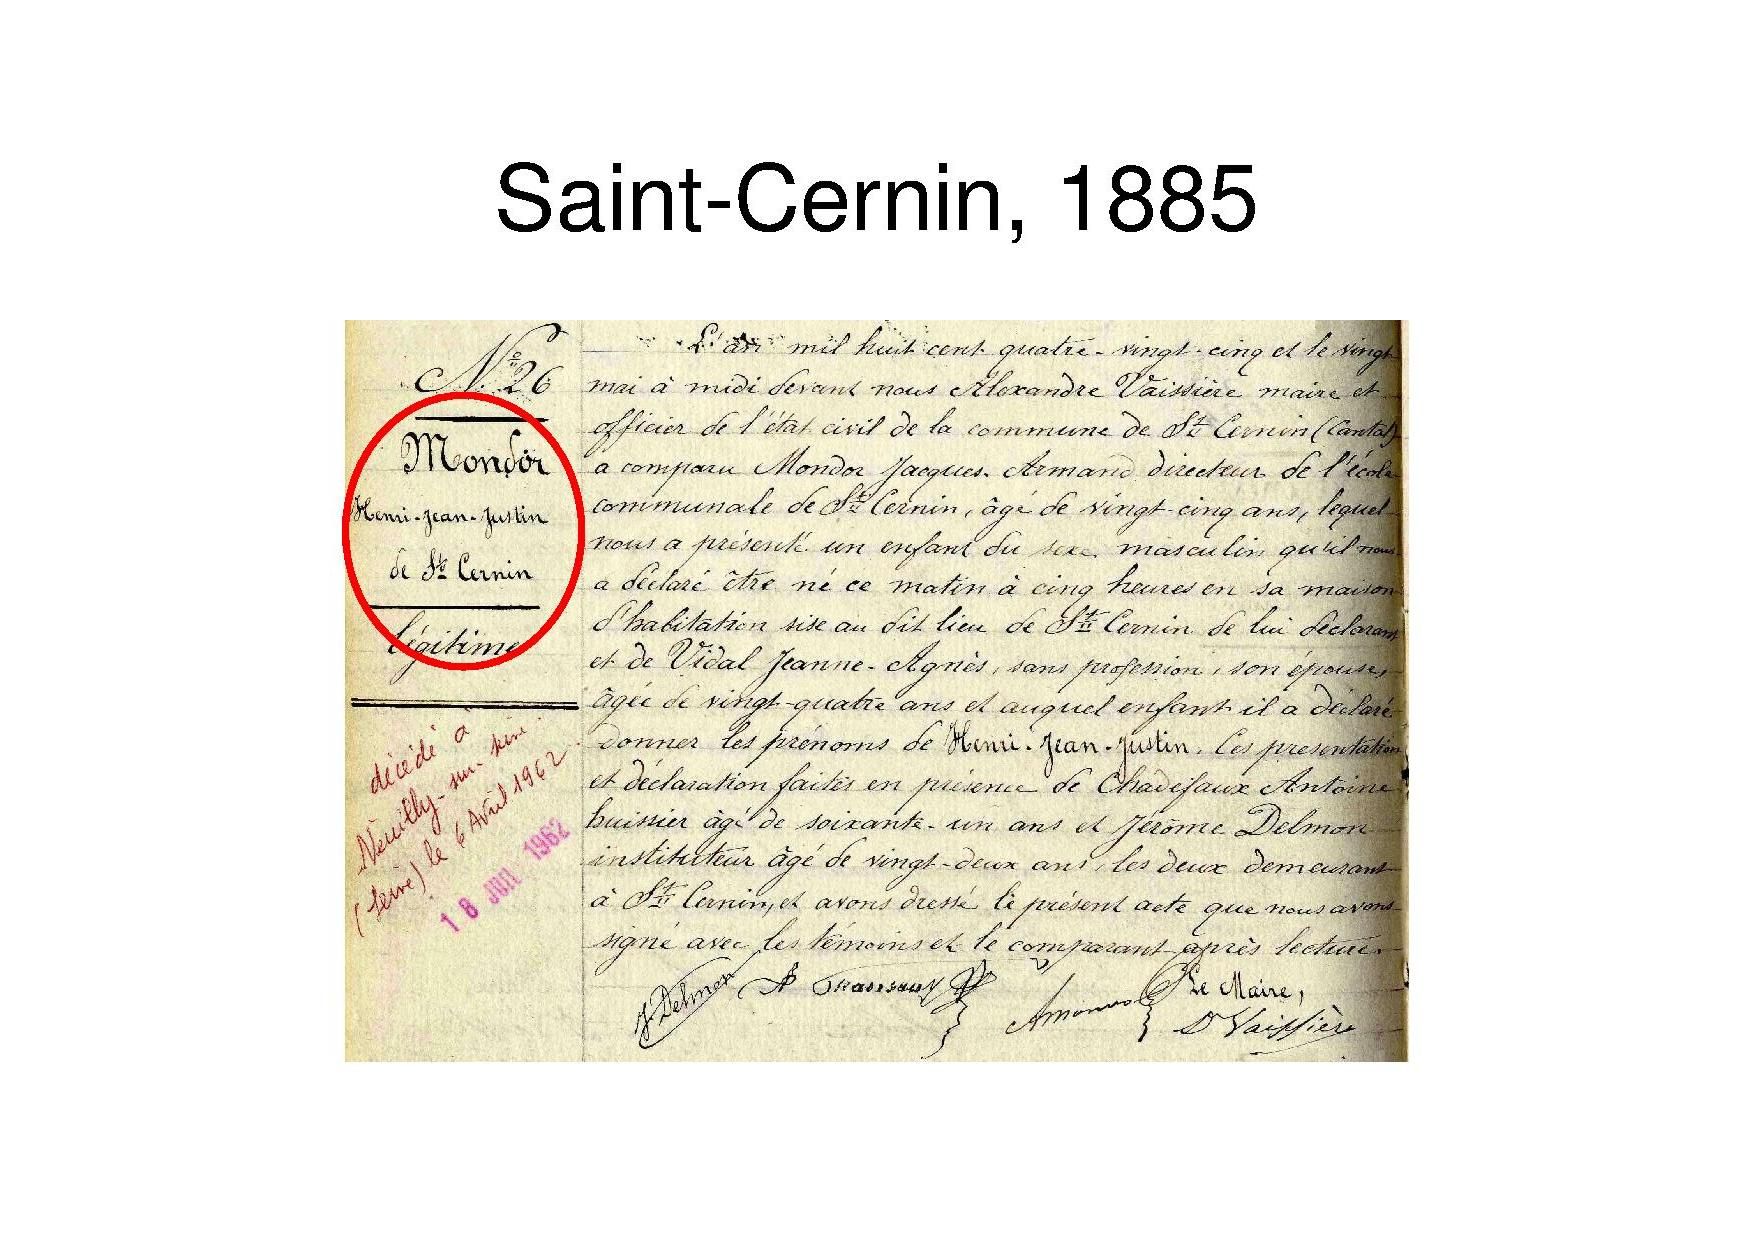 Saint-Cernin, 1885
Nº 26
Mondor
Henri-Jean-Justin
de St Cernin
légitime
décédé à
Neuilly-sur-Seine
(Seine) le 6 Avril 1962
18 JUIL 1962
L'an mil huit cent quatre-vingt-cinq et le vingt
mai à midi devant nous Alexandre Vaissière maire et
officier de l'état civil de la commune de St Cernin (Cantal)
a comparu Mondor Jacques-Armand directeur de l'école
communale de St Cernin, âgé de vingt-cinq ans, lequel
nous a présenté un enfant du sexe masculin qu'il nous
a déclaré être né ce matin à cinq heures en sa maison
d'habitation sise au dit lieu de St Cernin de lui déclarant
et de Vidal Jeanne-Agnès, sans profession, son épouse,
âgée de vingt-quatre ans et auquel enfant il a déclaré
donner les prénoms de Henri-Jean-Justin. Les présentation
et déclaration faites en présence de Chadefaux Antoine
huissier âgé de soixante-un ans et Jérôme Delmon
instituteur âgé de vingt-deux ans, les deux demeurant
à St Cernin, et avons dressé le présent acte que nous avons
signé avec les témoins et le comparant après lecture.
J. Delmon
Le Maire,
Vaissière